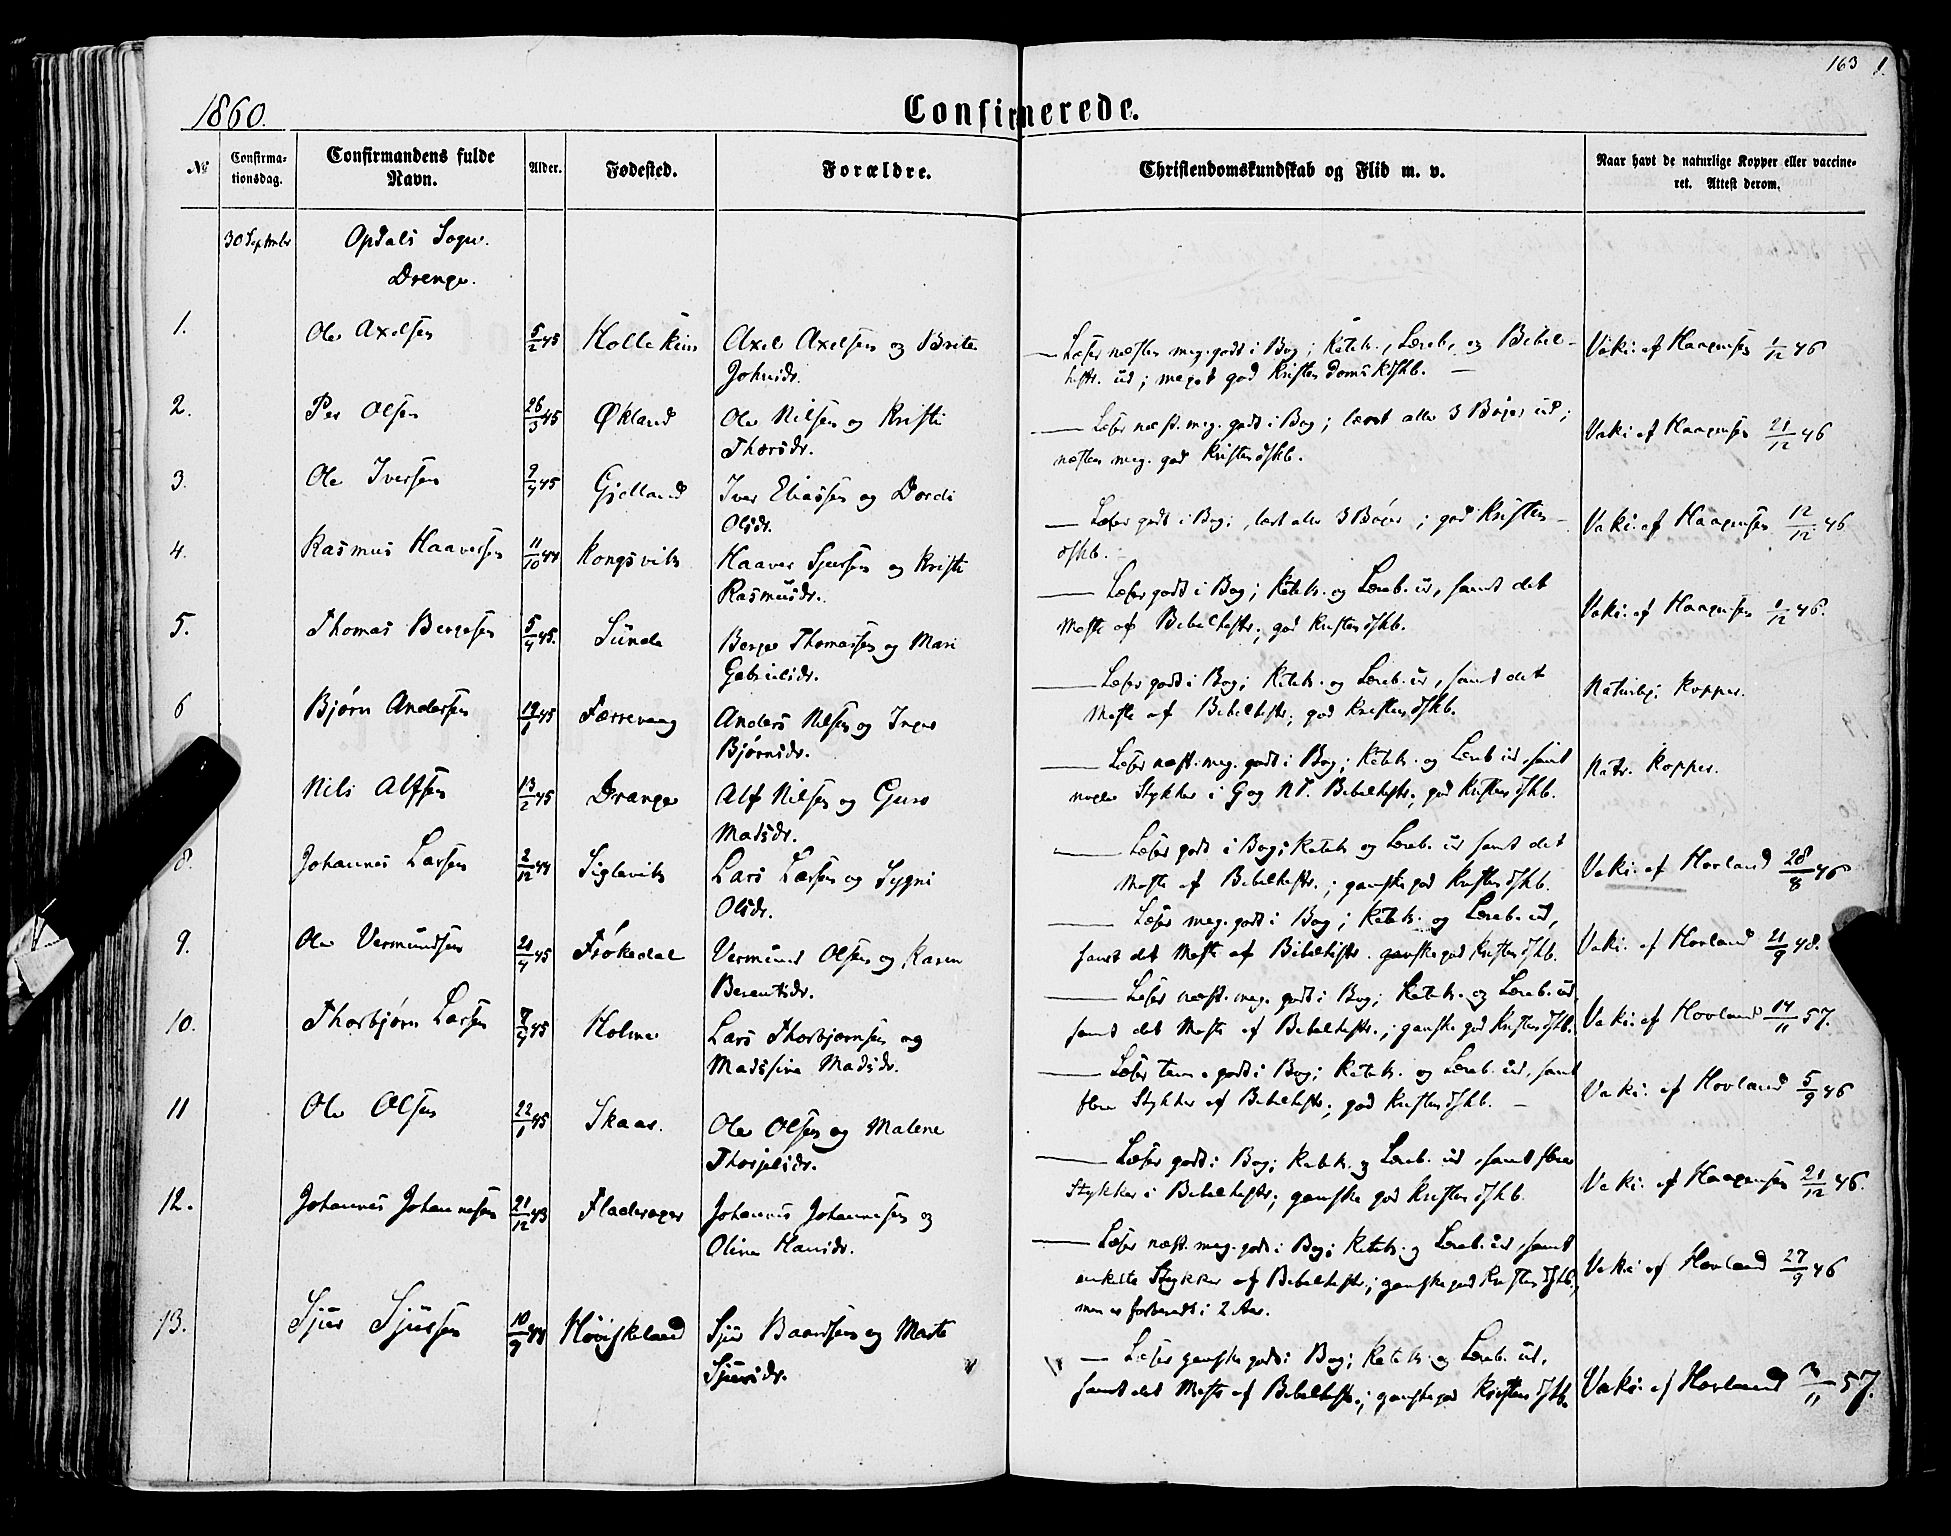 163
1860.
Confirmerede.
No
Confirma-
tionsdag.
Confirmandens fulde
Navn.
Alder.
Fødested.
Forældre.
Christendomskundskab og Flid m. v.
Naar havt de naturlige Kopper eller vaccine-
ret. Attest derom.
30 September
Opdals Sogn.
Drenge.
1. Ole Axelsen 5/2 45 Axel Axelsen og Brita
Johnsdr.
Læser næsten meg. godt i Bog; Katek., Læreb. og Bibel-
histr. ud; meget god Kristendomskdskb.
Vaki. af Haagensen 1/12 46
2. Per Olsen 26/3 45 Økland Ole Nilsen og Kristi
Thorsdr.
Læser næst. meg. godt i Bog; lært alle 3 Bøger ud;
næsten meg. god Kristendskb.
Vaki. af Haagensen 21/12 46
3. Ole Iversen 45 Gjelland Iver Eliassen og Dordi
Olsdr.
Læser godt i Bog; lært alle 3 Bøger; god Kristen-
dskb.
Vaki. af Haagensen 12/12 46
4. Rasmus Haaversen 11/10 44 Kongsvik Haaver Sjursen og Kristi
Rasmusdr.
Læser godt i Bog; Katek. og Læreb. ud, samt det
Meste af Bibelhistr.; god Kristendskb.
Vaki. af Haagensen 1/12 46.
5. Thomas Bergesen 5/4 45. Sunde Berge Thomassen og Mari
Gabrielsdr.
Læser godt i Bog; Katek. og Læreb. ud, samt det
Meste af Bibelhistr.; god Kristendskb.
Naturlg. Kopper.
6 Bjørn Andersen 19/1 45 Færrevaag Anders Nilsen og Inger
Bjørnsdr.
Læser næst. meg. godt i Bog; Katek. og Læreb. ud, samt
nogle Stykker i G og NT. Bibelhistr.; god Kristendskb.
Natr. Kopper.
Nils Alfsen 13/2 45 Drange Alf Nilsen og Guro
Madsdr.
Læser godt i Bog; Katek. og Læreb. ud samt det
Meste af Bibelhistr.; ganske god Kristendskb.
Vaki. af Hovland 28/8 46
8. Johannes Larsen 2/12 44 Siglevik Lars Larsen og Sygni
Olsdr.
Læser meg. godt i Bog; Katek. og Læreb. ud,
samt det Meste af Bibelhistr. ganske god Kristendskb.
Vaki. af Hovland 21/9 48.
9. Ole Vermundsen 21/4 45 Frøkedal Vermund Olsen og Karen
Berentsdr.
Læser næst. meg. godt i Bog; Katek. og Læreb. ud,
samt det Meste af Bibelhistr.; ganske god Kristendskb.
Vaki. af Hovland 14/11 57.
10. Thorbjørn Larsen 45 Holme Lars Thorbjørnsen og
Madssine Madsdr.
Læser tem. godt i Bog; Katek. og Læreb. ud, samt
flere Stykker af Bibelhistr.; god Kristendskb.
Vaki. af Hovland 5/9 46
11 Ole Olsen 22/1 45 Skaar. Ole Olsen og Malene
Læser godt i Bog; Katek. og Læreb. ud, samt flere
Stykker i Bibelhistr.; ganske god Kristendskb.
Vaki. af Haagensen 21/12 46.
12. Johannes Johannesen 21/12 43 Fladerager Johannes Johannesen og
Oline Hansdr.
Læser næst. meg. godt i Bog; Katek. og Læreb. ud, samt
enkelte Stykker af Bibelhistr.; ganske god Kristendskb.,
men er forberedt i 2 Aar.
Vaki af Hovland 27/9 46
13. Sjur Sjursen 10/9 44 Høviskeland Sjur Baardsen og Marte
Sjursdr.
Læser ganske godt i Bog; Katek. og Læreb. ud,
samt det Meste af Bibelhistr.; ganske god Kristendskb.
Vaki. af Hovland 3/11 57.